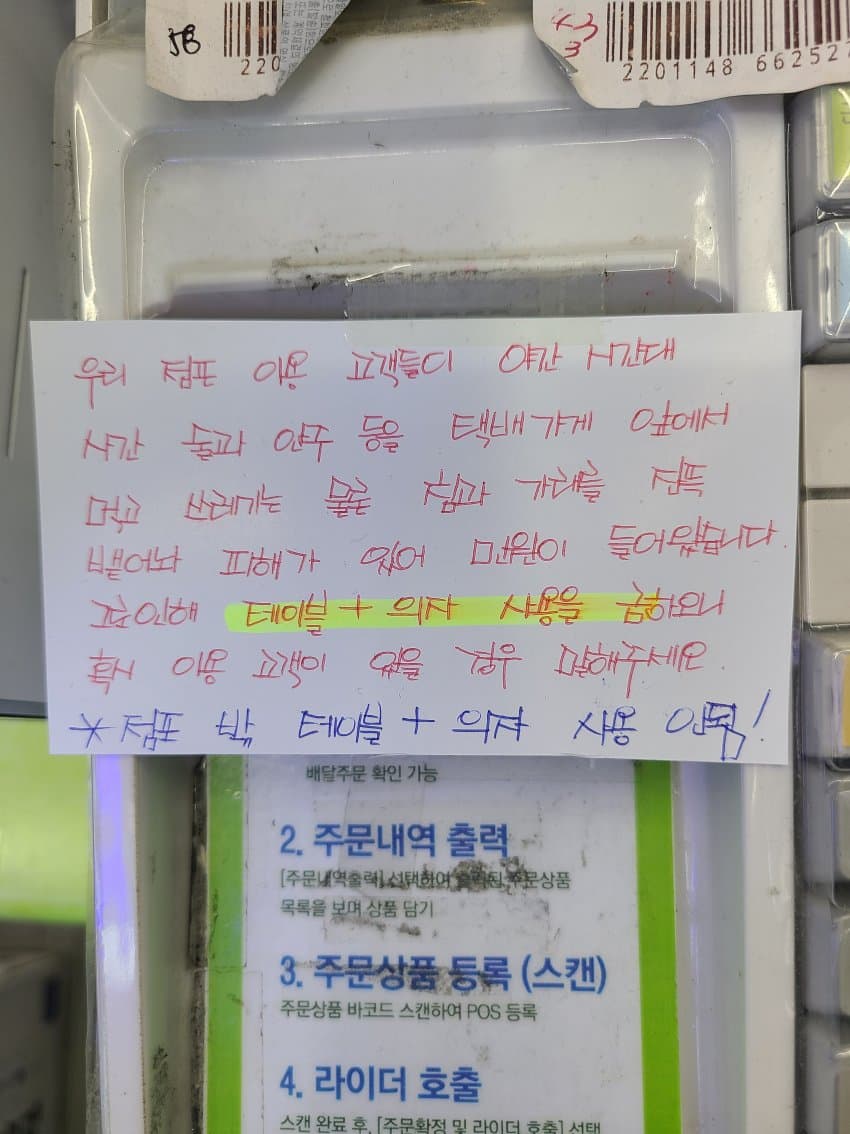 5B
220
2201148 66252
우리 점포 이용 고객들이 야간 시간대
사간 술과 안주 등을 택배가게 앞에서
먹고 쓰레기는 물론 침과 가래를 잔뜩
뱉어놔 피해가 있어 민원이 들어왔습니다.
로인해 테이블 + 의자 사용을 금하오니
혹시 이용 고객이 있을 경우 말해주세요.
* 점포 밖 테이블 + 의자 사용 안됨!
배달주문 확인 가능
2. 주문내역 출력
[주문내역출력] 선택하여 출력된 주문상품
목록을 보며 상품 담기
3. 주문상품 등록 (스캔)
주문상품 바코드 스캔하여 POS 등록
4. 라이더 호출
스캔 완료 후, [주문확정 및 라이더 호출] 선택